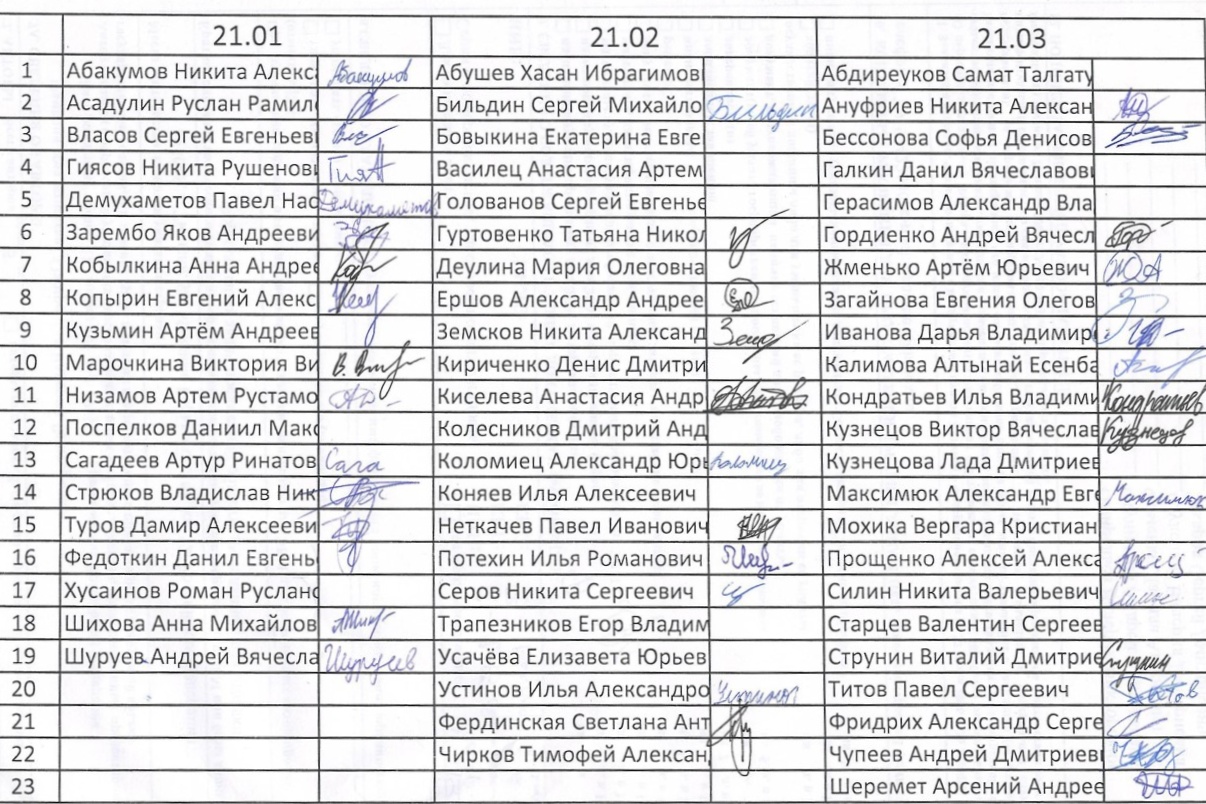 21.01 21.02 21.03
1 Абакумов Никита Алекс Абакумов Абушев Хасан Ибрагимов Абдиреуков Самат Талгату
2 Асадулин Руслан Рамил Бильдин Сергей Михайло Бильдин Ануфриев Никита Алексан
3 Власов Сергей Евгеньев Влас Бовыкина Екатерина Евге Бессонова Софья Денисов
4 Гиясов Никита Рушенов Гия Василец Анастасия Артем Галкин Данил Вячеславов
5 Демухаметов Павел Нас Демухаметов Голованов Сергей Евгенье Герасимов Александр Вла
6 Зарембо Яков Андрееви Гуртовенко Татьяна Никол Гордиенко Андрей Вячесл
7 Кобылкина Анна Андрее Деулина Мария Олеговна Жменько Артём Юрьевич
8 Копырин Евгений Алекс Ершов Александр Андрее Загайнова Евгения Олегов
9 Кузьмин Артём Андреев Земсков Никита Александ Иванова Дарья Владимир
10 Марочкина Виктория Ви Кириченко Денис Дмитри Калимова Алтынай Есенба
11 Низамов Артем Рустамо Киселева Анастасия Андр Кондратьев Илья Владими Кондратьев
12 Поспелков Даниил Мак Колесников Дмитрий Анд Кузнецов Виктор Вячеслав Кузнецов
13 Сагадеев Артур Ринатов Сага Коломиец Александр Юрь Коломиец Кузнецова Лада Дмитриев
14 Стрюков Владислав Ник Коняев Илья Алексеевич Максимюк Александр Евге Максимюк
15 Туров Дамир Алексееви Неткачев Павел Иванович Мохика Вергара Кристиан
16 Федоткин Данил Евгень Потехин Илья Романович Прощенко Алексей Алекса
17 Хусаинов Роман Руслано Серов Никита Сергеевич Силин Никита Валерьевич
18 Шихова Анна Михайлов Трапезников Егор Владим Старцев Валентин Сергеев
19 Шуруев Андрей Вячесла Шуруев Усачёва Елизавета Юрьев Струнин Виталий Дмитрие
20 Устинов Илья Александро Титов Павел Сергеевич
21 Фердинская Светлана Ант Фридрих Александр Серге
22 Чирков Тимофей Алексан Чупеев Андрей Дмитриев
23 Шеремет Арсений Андрее